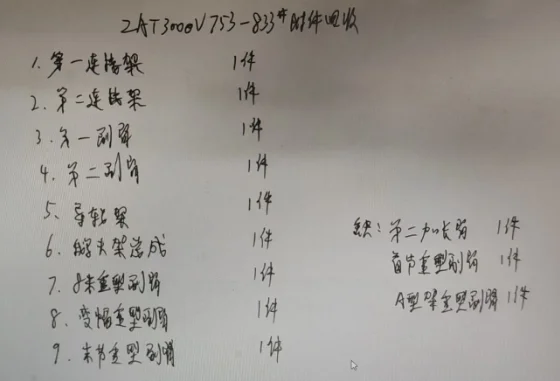 ZAT3000V753-833#附件回收
1. 第一连接架 1件
2. 第二连接架 1件
3. 第一副臂 1件
4. 第二副臂 1件
5. 导轮架 1件
6. 臂头架总成 1件
7. 8米重型副臂 1件
8. 变幅重型副臂 1件
9. 末节重型副臂 1件
缺: 第二加长臂 1件
首节重型副臂 1件
A型架重型副臂 1件